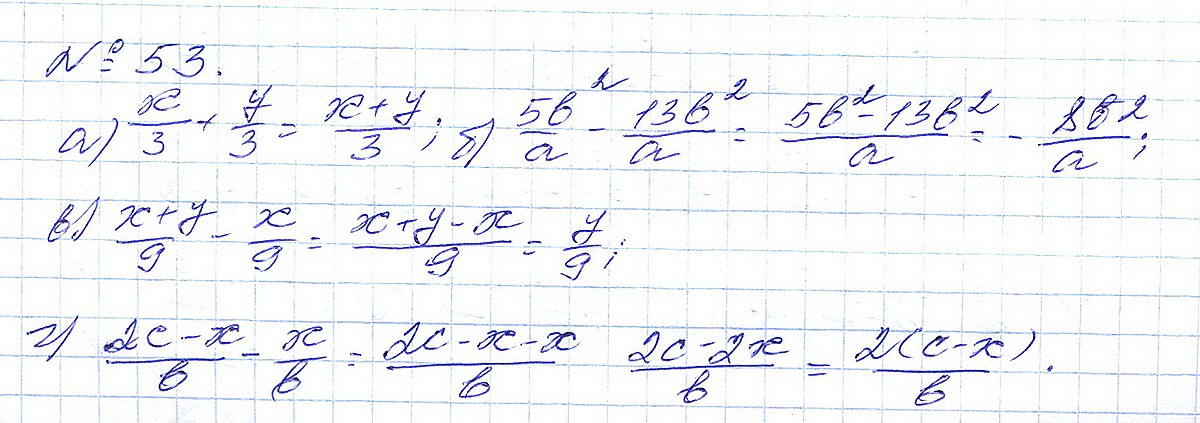 № 53.
а) x/3 + y/3 = x+y/3; б) 5b²/a - 13b²/a = 5b²-13b²/a = - 8b²/a;
в) x+y/9 - x/9 = x+y-x/9 = y/9;
г) 2c-x/b - x/b = 2c-x-x/b 2c-2x/b = 2(c-x)/b.